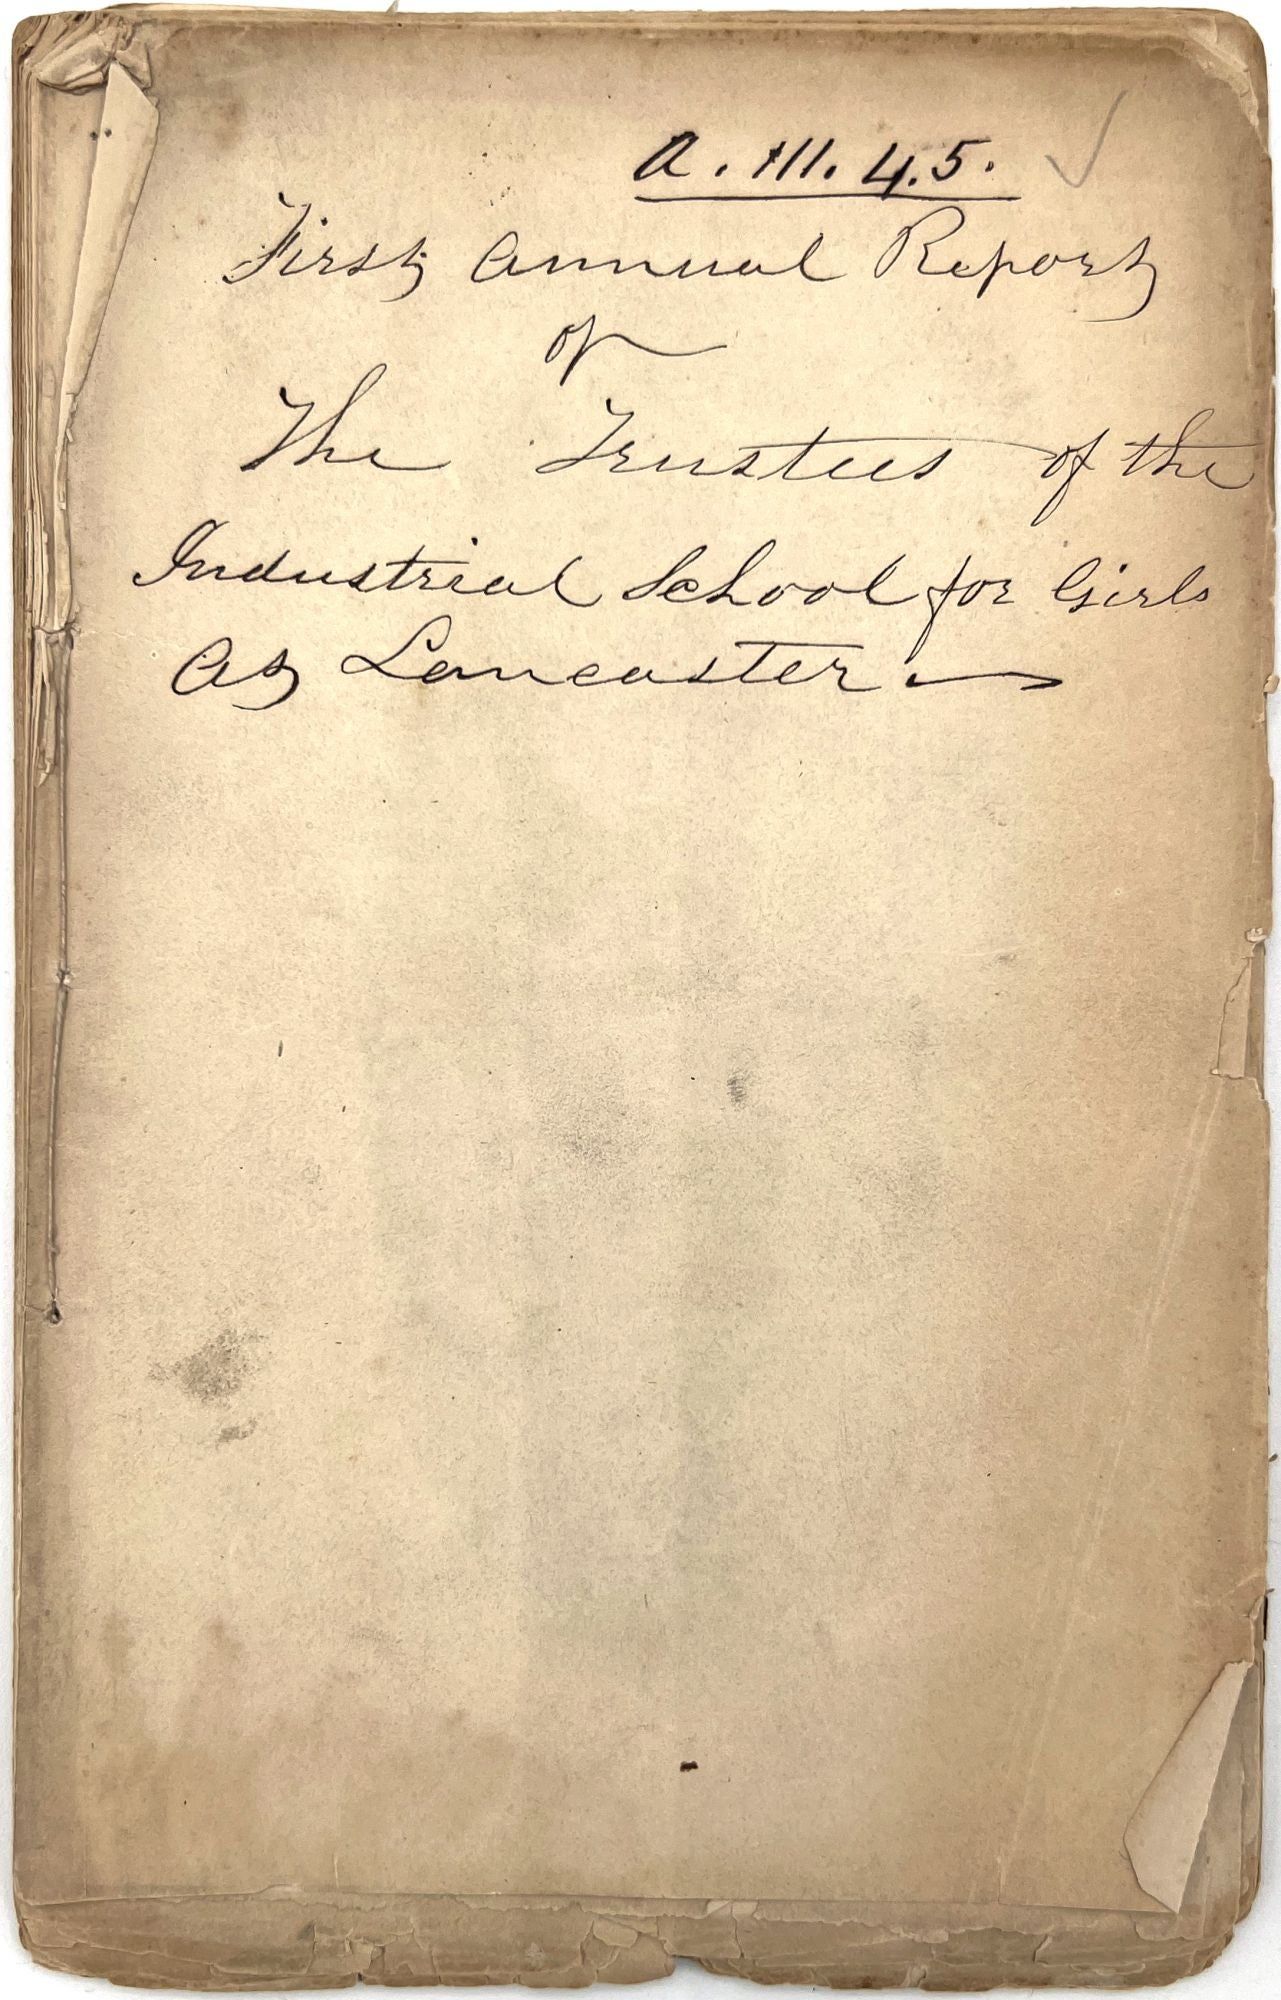 A. III. 4.5.
First Annual Report
of
The Trustees of the
Industrial School for Girls
At Lancaster